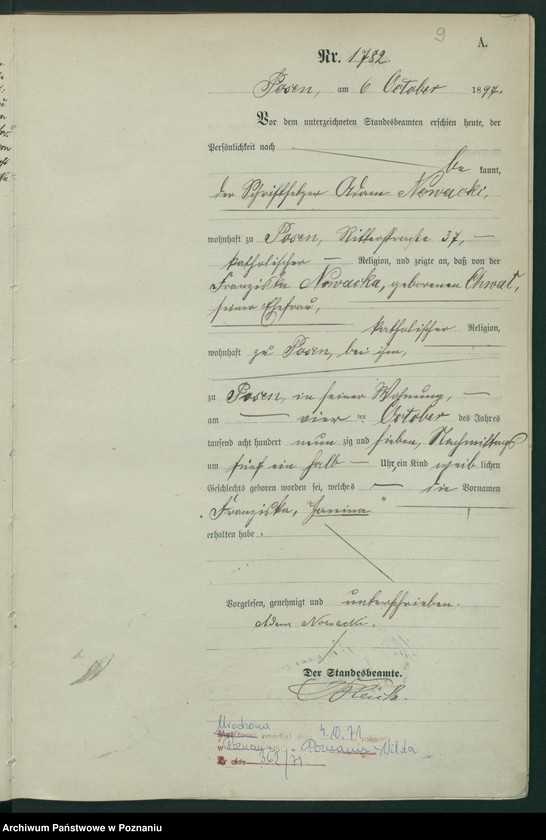 9
A.
Nr. 1782.
Posen, am 6 October 1897.
Vor dem unterzeichneten Standesbeamten erschien heute, der
Persönlichkeit nach
be kannt,
der Schriftsetzer Adam Nowacki,
wohnhaft zu Posen, Ritterstraße 37,
katholischer Religion, und zeigte an, daß von der
Franziska Nowacka, geborenen Chwat,
seiner Ehefrau,
katholischer Religion,
wohnhaft zu Posen, bei ihm,
zu Posen, in seiner Wohnung,
am vier ten October des Jahres
tausend acht hundert neun zig und sieben, Nachmittags
um fünf ein halb Uhr, ein Kind weib lichen
Geschlechts geboren worden sei, welches die Vornamen
Franziska, Janina
erhalten habe.
Vorgelesen, genehmigt und unterschrieben.
Adam Nowacki.
Der Standesbeamte.
Urodzona
zmarł(a) dnia 4.10.71
w Poznań Poznaniu-Wilda
Nr 362/71
Archiwum Państwowe w Poznaniu